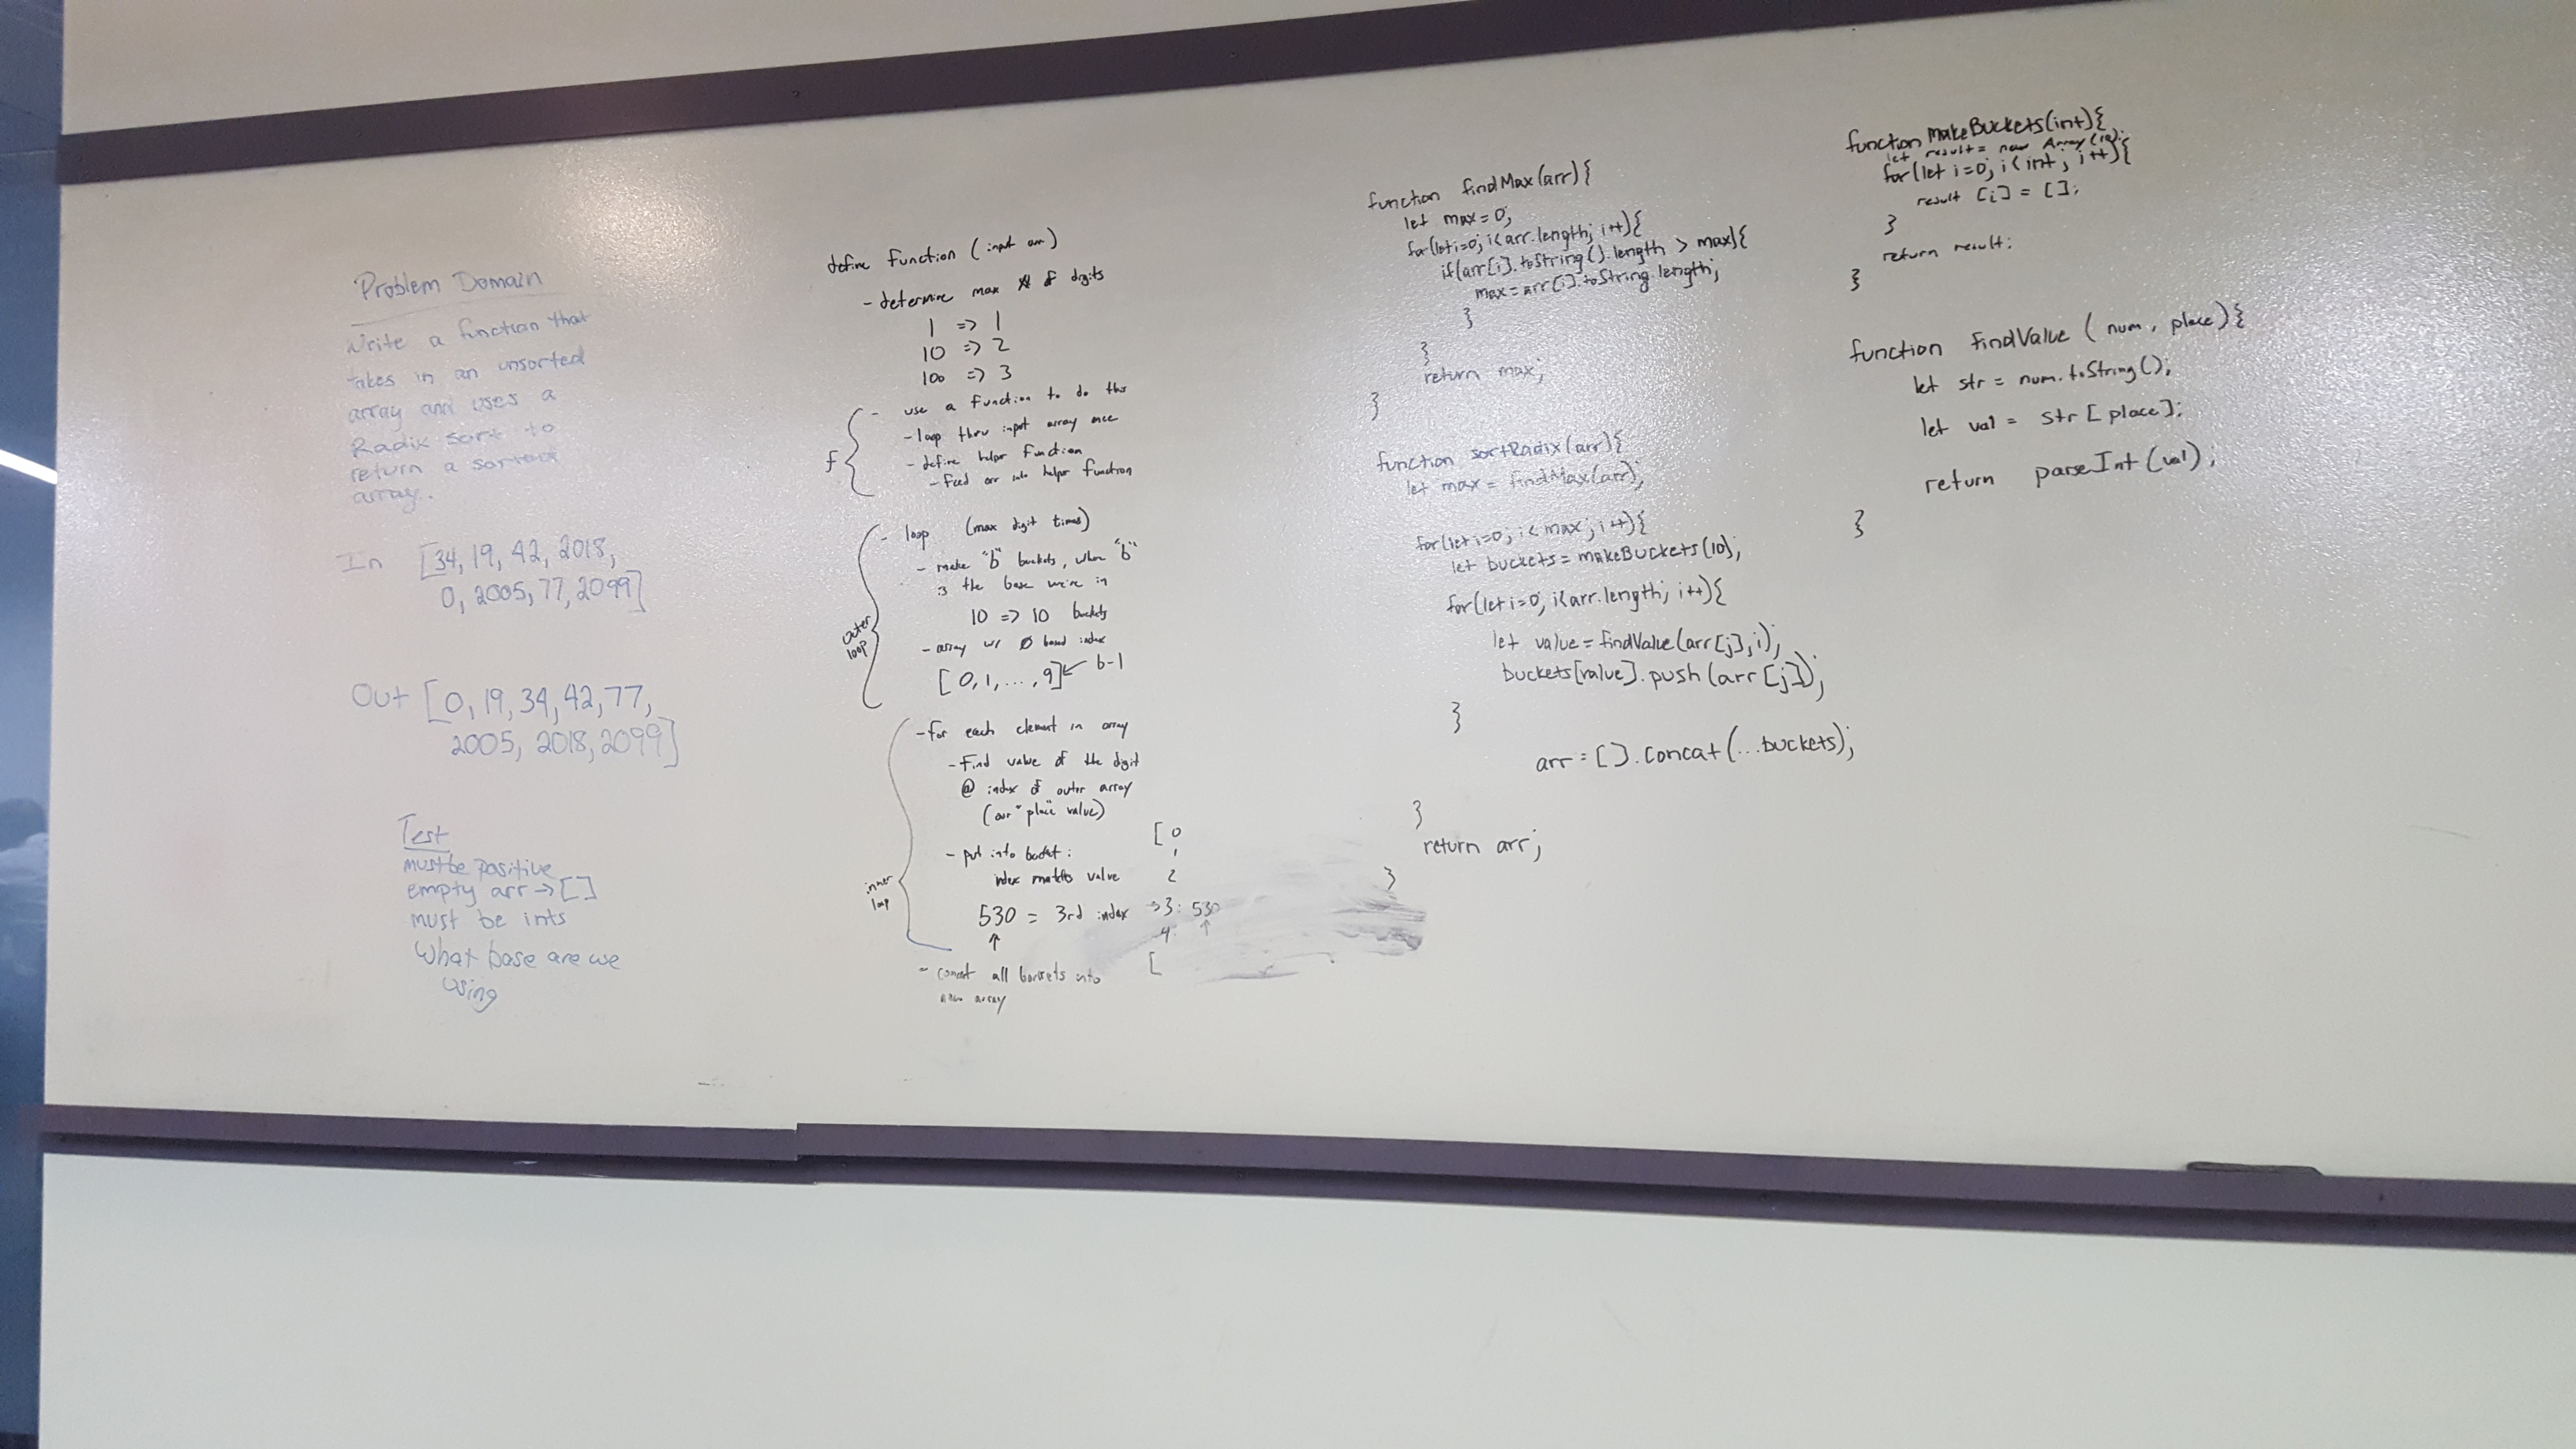 Problem Domain
Write a function that
takes in an unsorted
array and uses a
Radix sort to
return a sorted
array.
In [34, 19, 42, 2018,
0, 2005, 77, 2099]
Out [0, 19, 34, 42, 77,
2005, 2018, 2099]
Test
must be positive
empty arr → []
must be ints
What base are we
using
define function (input arr)
- determine max # of digits
1 => 1
10 => 2
100 => 3
f
- use a function to do this
- loop thru input array once
- define helper function
- feed arr into helper function
outer
loop
- loop (max digit times)
- make "b" buckets, where "b"
is the base we're in
10 => 10 buckets
- array w/ Ø based index
[0,1,...,9] ← b-1
inner
loop
- for each element in array
- Find value of the digit
@ index of outer array
(our "place" value)
- put into bucket:
index matches value
530 = 3rd index
↑
[ 0
1
2
→3: 530
4 ↑
[
- concat all buckets into
new array
function findMax(arr){
let max=0;
for(let i=0; i<arr.length; i++){
if(arr[i].toString().length > max){
max=arr[i].toString.length;
}
}
return max;
}
function sortRadix(arr){
let max = findMax(arr);
for(let i=0; i<max; i++){
let buckets = makeBuckets(10);
for(let i=0; i<arr.length; i++){
let value = findValue(arr[j],i);
buckets[value].push(arr[j]);
}
arr = [].concat(...buckets);
}
return arr;
}
function makeBuckets(int){
let result = new Array(10);
for(let i=0; i<int; i++){
result [i] = [];
}
return result;
}
function findValue ( num, place){
let str = num.toString();
let val = str[place];
return parseInt(val);
}